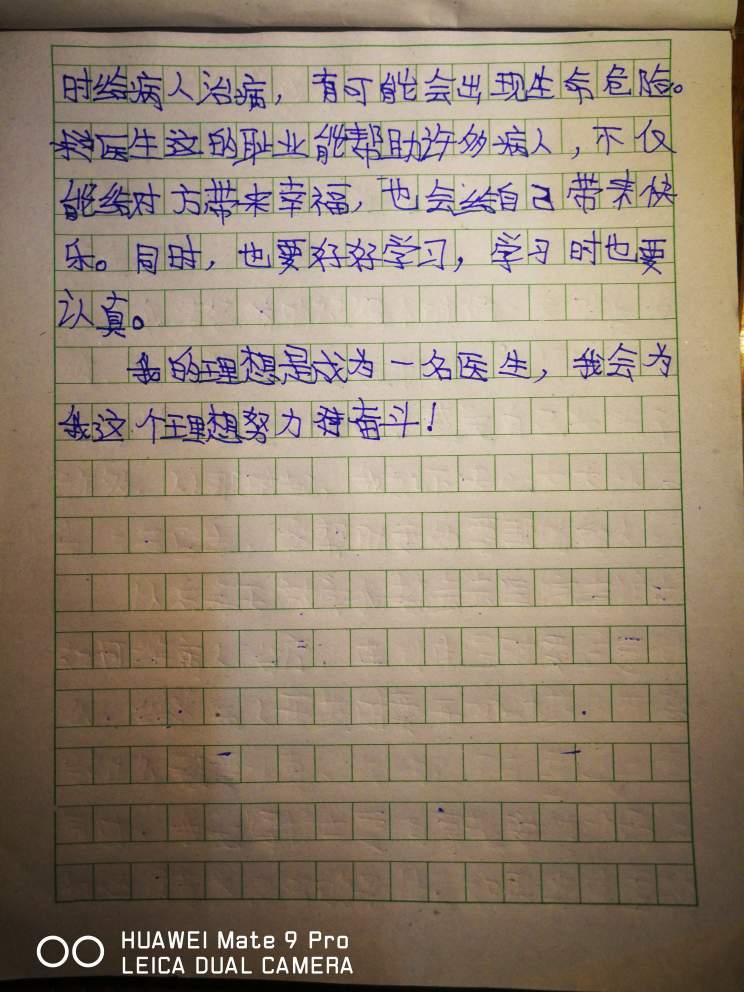 时给病人治病，有可能会出现生命危险。
医生这的职业能帮助许多病人，不仅
能给对方带来幸福，也会给自己带来快
乐。同时，也要好好学习，学习时也要
认真。
我的理想是成为一名医生，我会为
我这个理想努力奋斗！
HUAWEI Mate 9 Pro
LEICA DUAL CAMERA